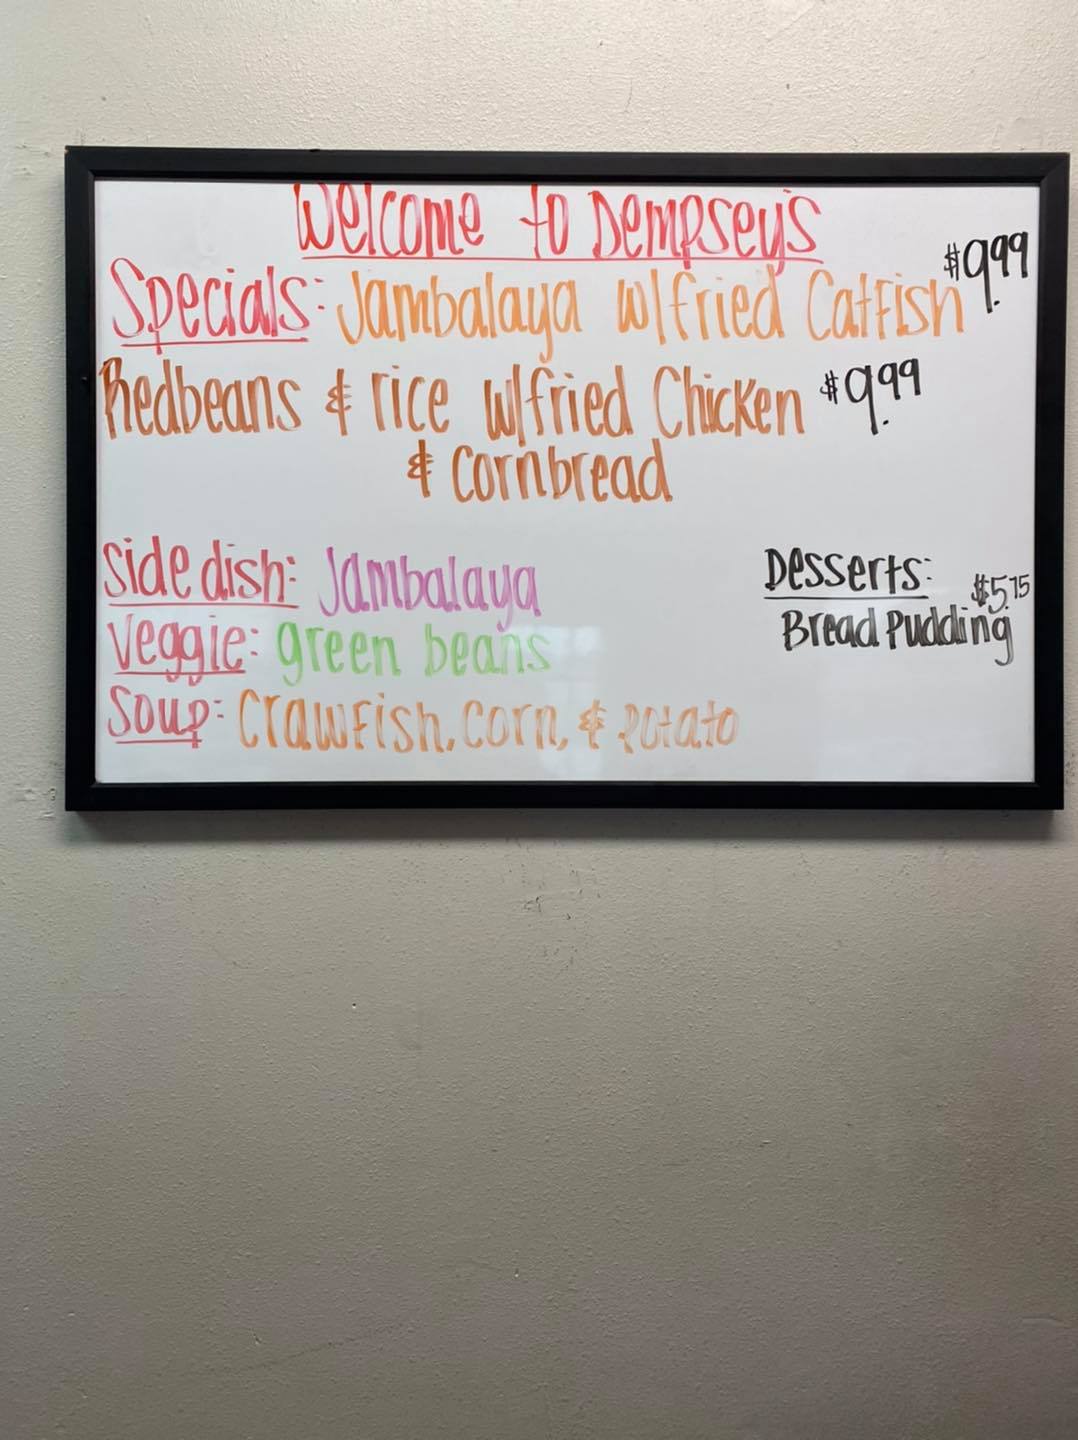 Welcome to Dempsey's
Specials: Jambalaya w/fried Catfish $9.99
Redbeans & rice w/fried Chicken $9.99
& Cornbread
Side dish: Jambalaya
Veggie: green beans
Soup: Crawfish, Corn, & Potato
Desserts:
Bread Pudding $5.75